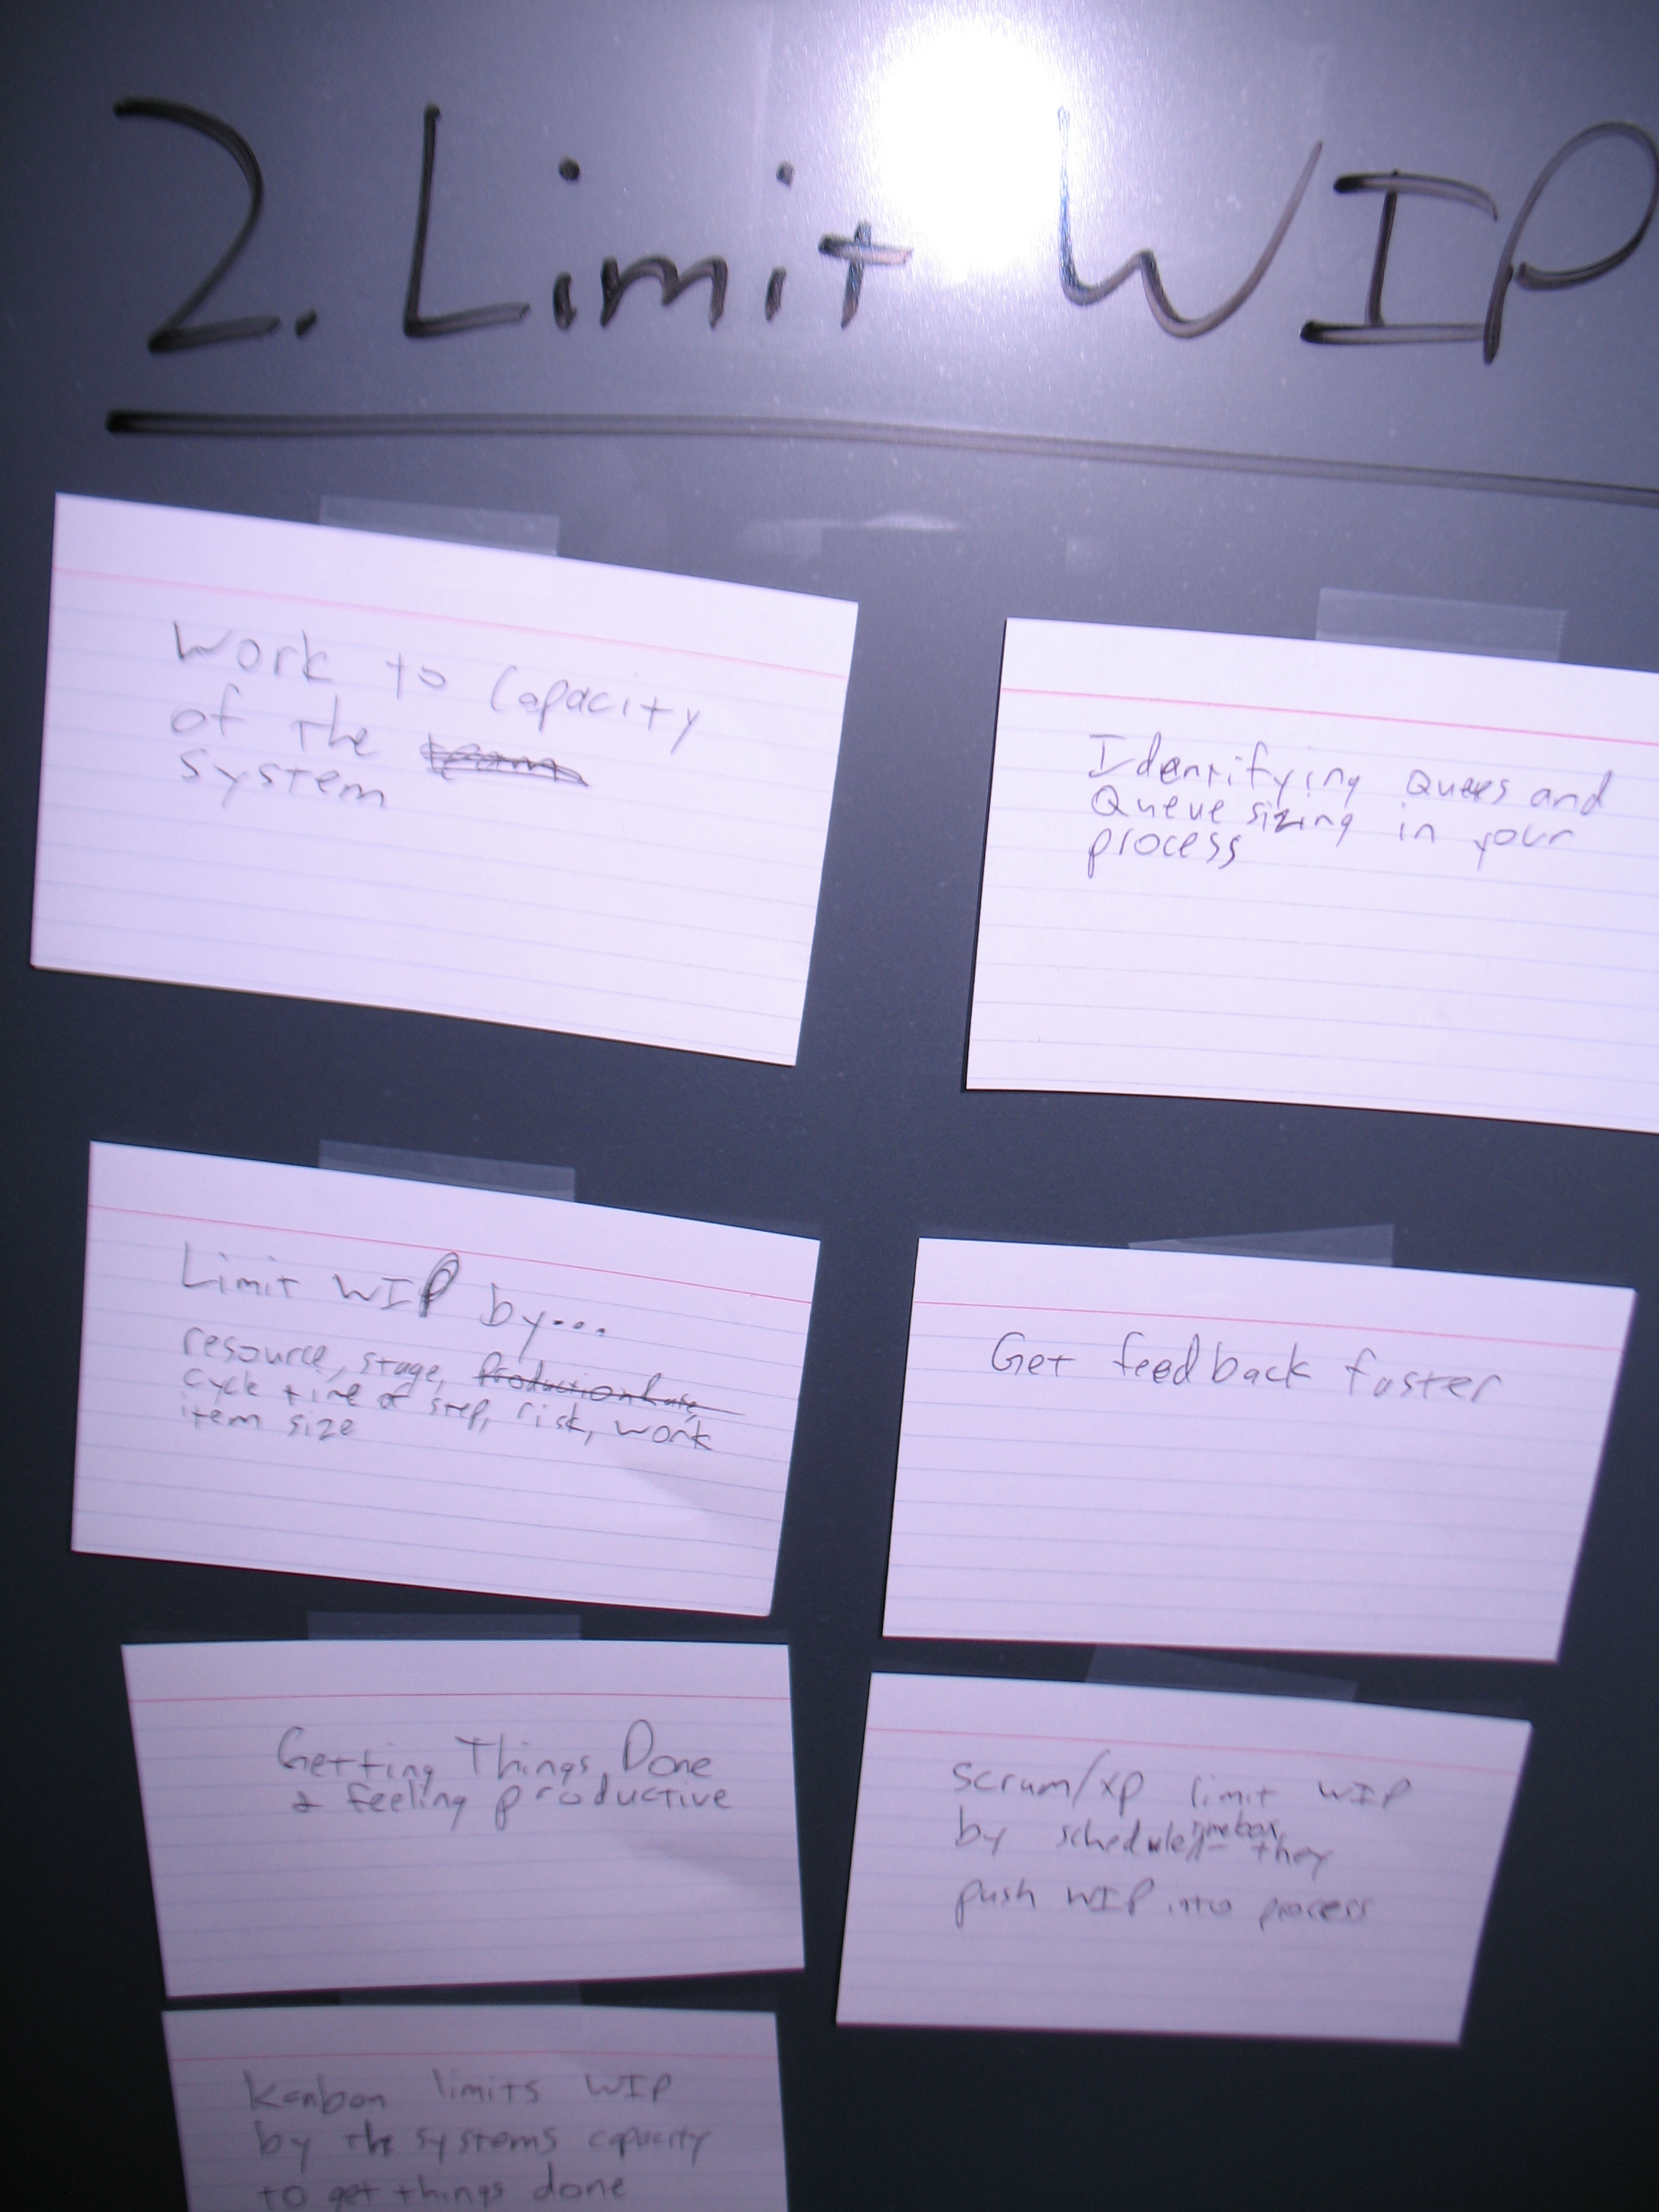 2. Limit WIP
Work to Capacity
of the team
System
Identifying Ques and
Queue sizing in your
process
Limit WIP by...
resource, stage, Production Rate,
cycle time of step, risk, work
item size
Get feedback faster
Getting Things Done
& feeling productive
Scrum/XP limit WIP
by schedule/timebox, they
push WIP into process
Kanban limits WIP
by the systems capacity
to get things done